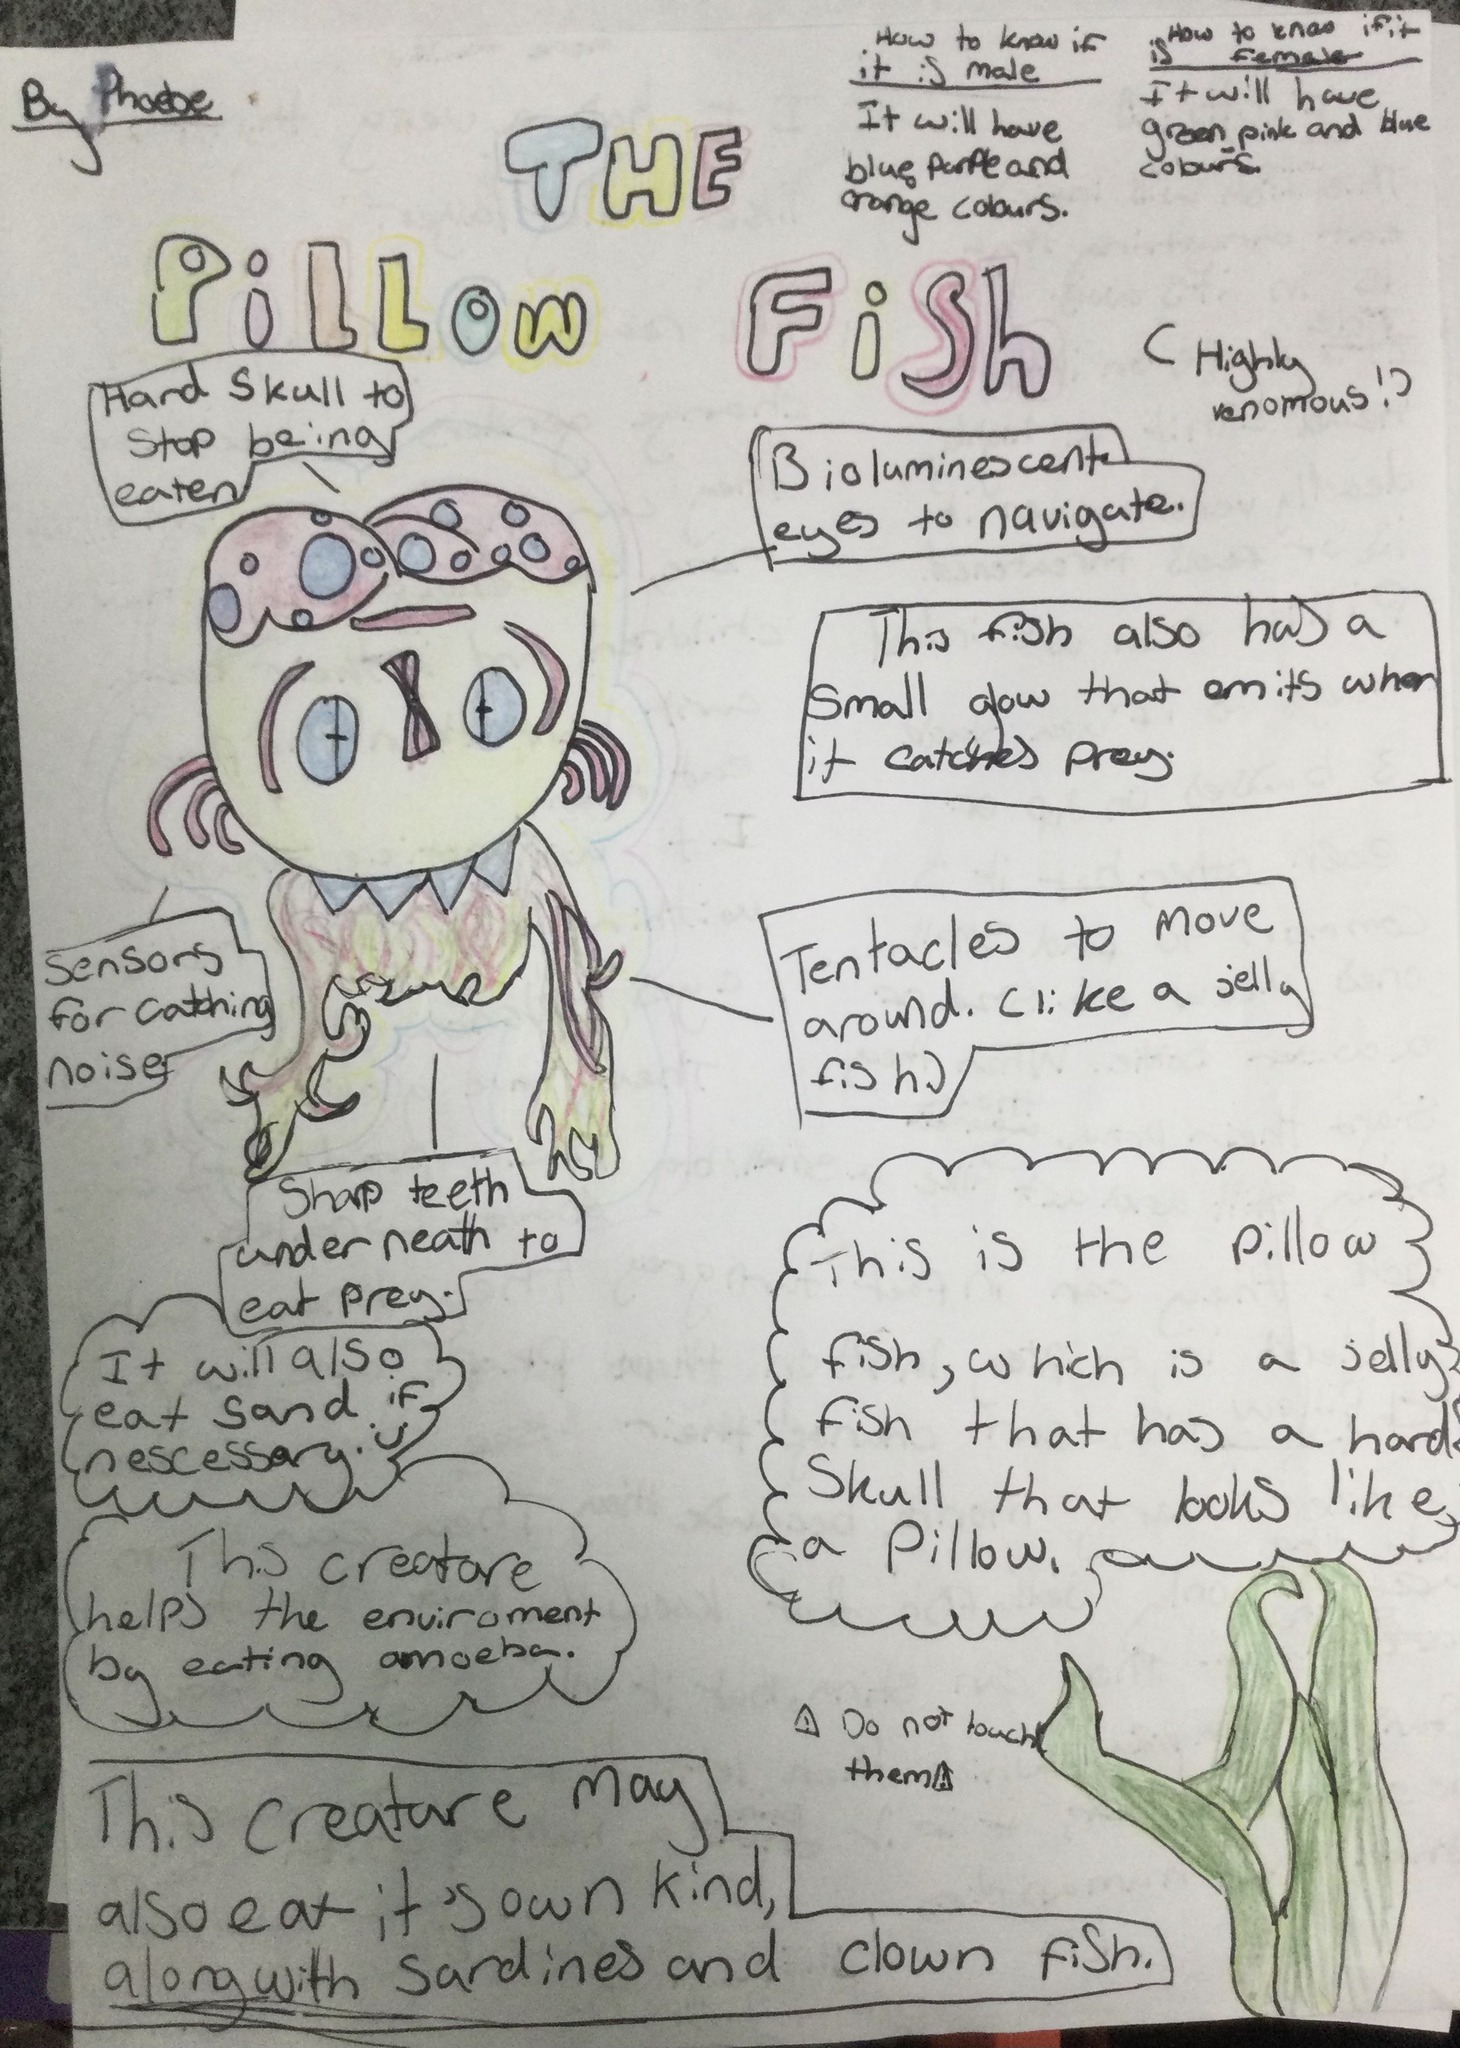 By Phoebe
How to know if
it is male
It will have
blue, purple and
orange colours.
How to know if it
is female
It will have
green, pink and blue
colours.
THE
PiLLOW FiSh
(Highly
venomous!)
Hard Skull to
stop being
eaten
Bioluminescent
eyes to navigate.
This fish also has a
small glow that emits when
it catches prey.
Sensors
for catching
noise
Tentacles to move
around. (like a jelly
fish.)
Sharp teeth
underneath to
eat prey.
It will also
eat sand if
nescessary.
This creature
helps the enviroment
by eating amoeba.
This is the pillow
fish, which is a jelly
fish that has a hard
Skull that looks like
a Pillow.
⚠ Do not touch
them ⚠
This creature may
also eat it's own kind,
along with sardines and clown fish.